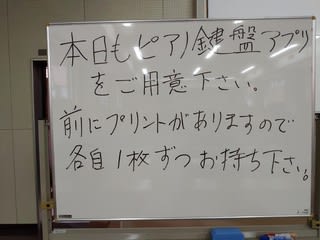 本日もピアノ鍵盤アプリ
をご用意下さい。
前にプリントがありますので
各自1枚ずつお持ち下さい。